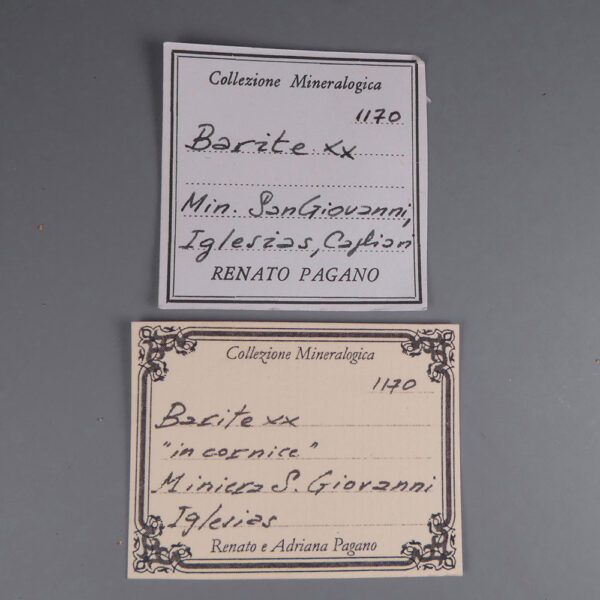 Collezione Mineralogica
1170
Barite xx
Min. San Giovanni,
Iglesias, Cagliari
RENATO PAGANO
Collezione Mineralogica
1170
Barite xx
"in cornice"
Miniera S. Giovanni
Iglesias
Renato e Adriana Pagano